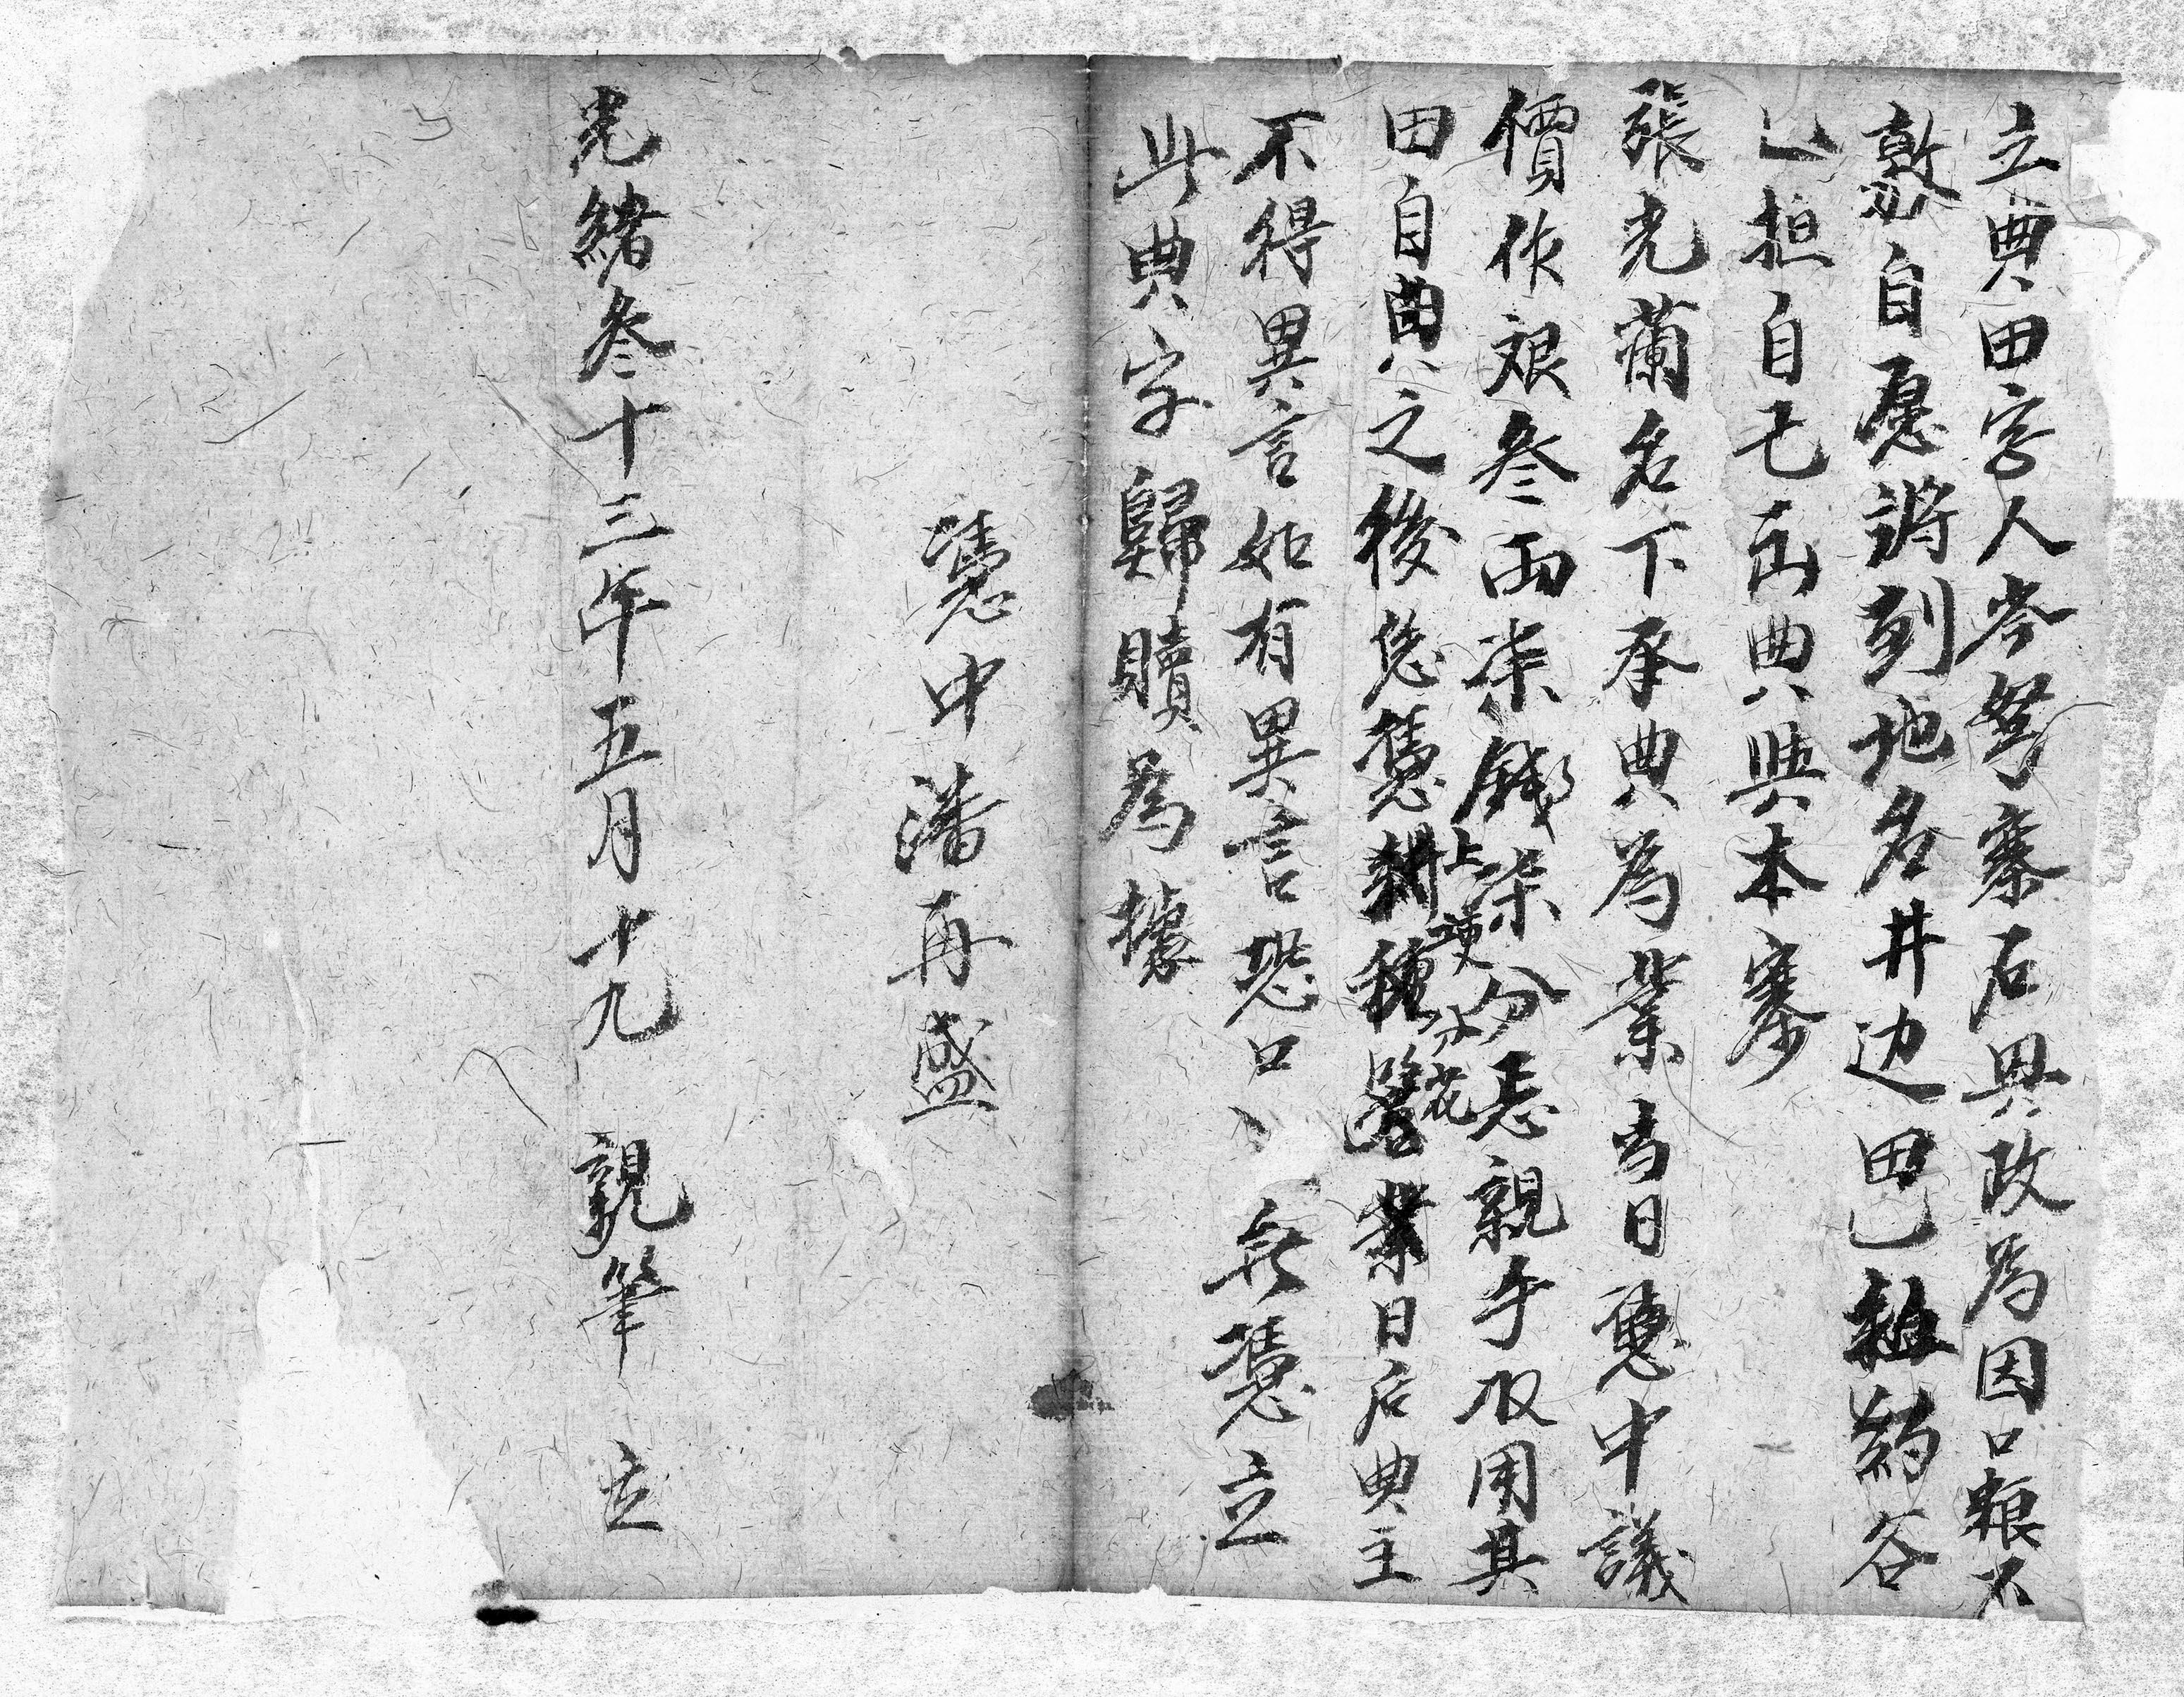 立典田字人岑弩寨石興政為因口粮不
敷自愿將到地名井边田乙坵約谷
乙担自己正典與本寨
張光蘭名下承典為業當日憑中議
價作艮叁両柒錢柒分忝親手收用其
田自典之後恁憑耕種管業日后典主
上埂分花
不得異言如有異言恐口
無憑立
此典字歸贖為據
憑中潘再盛
光緒叁十三年五月十九
親筆
立